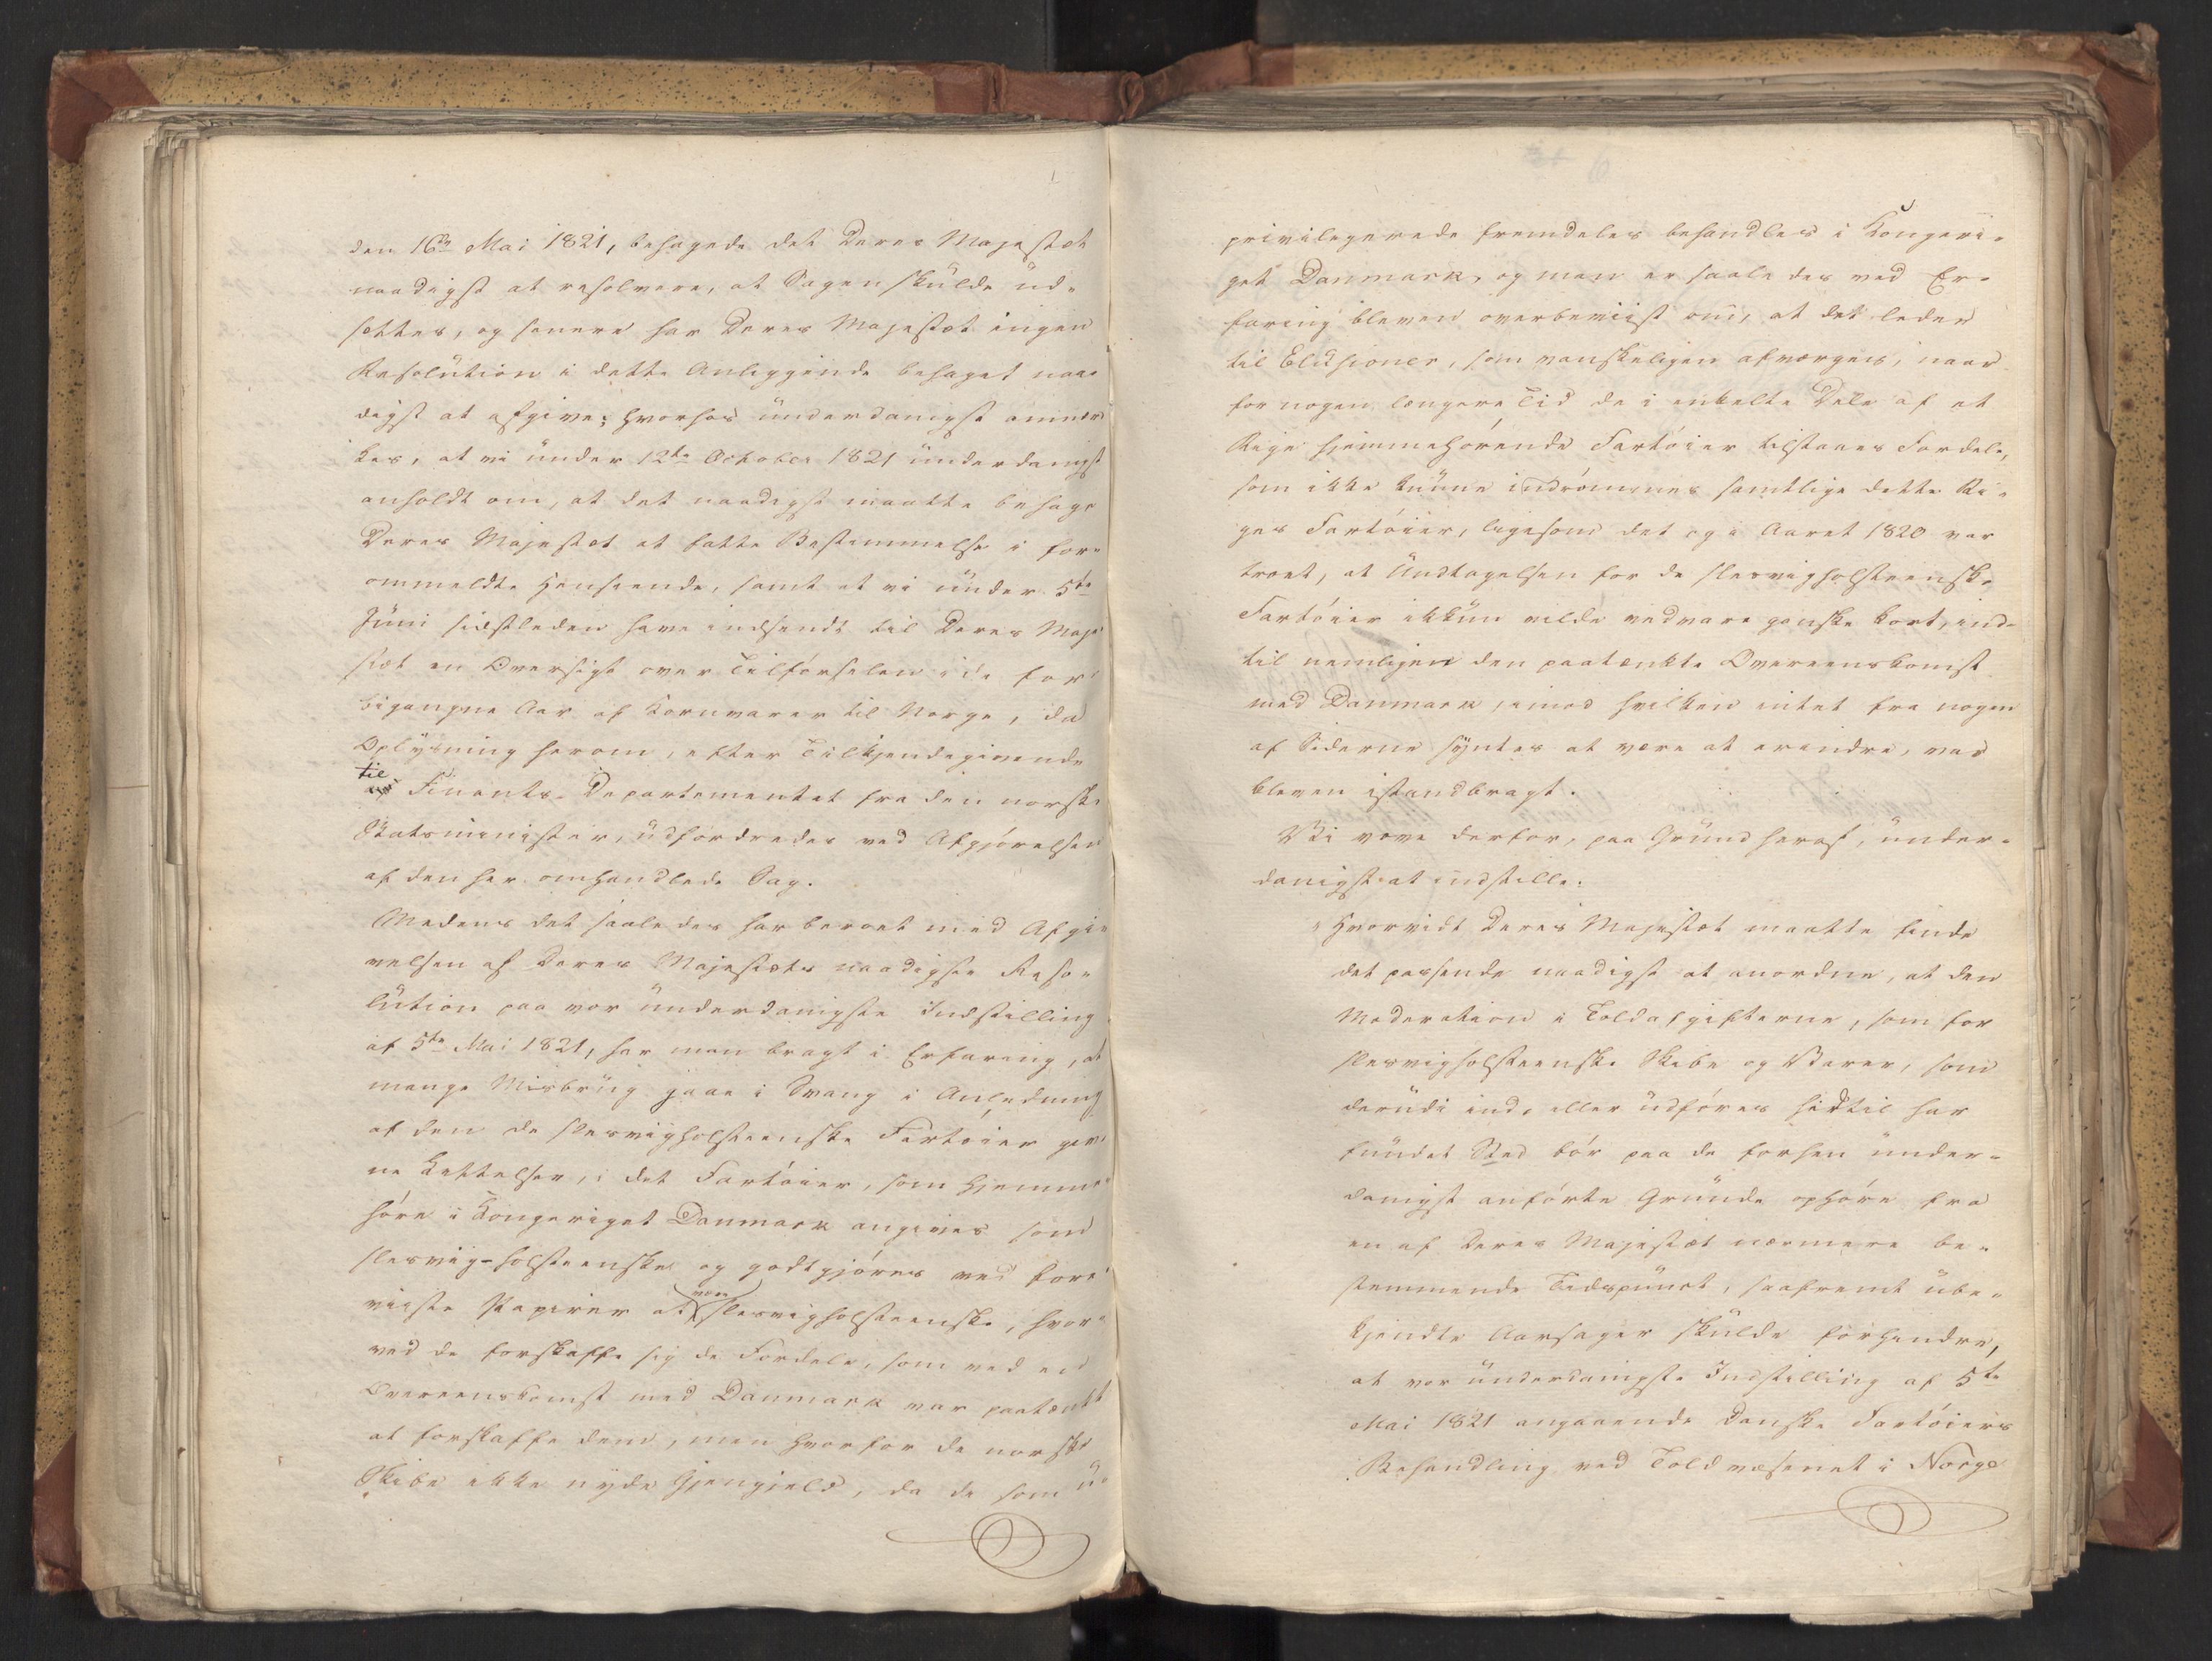 den 16de Mai 1821, behagede det Deres Majestæt
naadigst at resolvere, at Sagen skulde ud-
sættes, og senere har Deres Majestæt ingen
Resolution i dette Anliggende behaget naa-
digst at afgive; hvorhos underdanigst anmær-
kes, at vi under 12te October 1821 underdanigst
anholdt om, at det naadigst maatte behage
Deres Majestæt at fatte Bestemmelse i for-
ommeldte Henseende, samt at vi under 5te
Juni sidstleden have indsendt til Deres Maje-
stæt en Oversigt over Tilførselen i de for-
bigangne Aar af Kornvarer til Norge, da
Oplysning herom, efter Tilkjendegivende
til Finants-Departementet fra den norske
Statsminister, udfordredes ved Afgjørelsen
af den her omhandlede Sag.
Medens det saaledes har beroet med Afgi-
velsen af Deres Majestæts naadigste Reso-
lution paa vor underdanigste Indstilling
af 5te Mai 1821, har man bragt i Erfaring, at
mange Misbrug gaae i Svang i Anledning
af den de slesvigholsteenske Fartøier giv-
ne Lettelser, i det Fartøier, som hjemme-
høre i Kongeriget Danmark angives som
slesvig-holsteenske og godtgjøres ved fore-
viiste Papirer at være slesvigholsteenske, hvor-
ved de forskaffe sig de Fordele, som ved en
Overeenskomst med Danmark var paatænkt
at forskaffe dem, men hvorfor de norske
Skibe ikke nyde Gjengjeld, da de som u-
privilegerede fremdeles behandles i Kongeri-
get Danmark, og man er saaledes ved Er-
faring bleven overbeviist om, at det leder
til Elusioner, som vanskeligen afværges, naar
for nogen længere Tid de i enkelte Dele af et
Rige hjemmehørende Fartøier tilstaaes Fordele,
som ikke kunne indrømmes samtlige dette Ri-
ges Fartøier, ligesom det og i Aaret 1820 var
troet, at Undtagelsen for de slesvigholsteenske
Fartøier ikkun vilde vedvare ganske kort, ind-
til nemligen den paatænkte Overeenskomst
med Danmark, imod hvilken intet fra nogen
af Siderne syntes at være at erindre, var
bleven istandbragt.
Vi vove derfor, paa Grund heraf, under-
danigst at indstille:
"Hvorvidt Deres Majestæt maatte finde
det passende naadigst at anordne, at den
Moderation i Toldafgifterne, som for
slesvigholsteenske Skibe og Varer, som
derudi ind- eller udføres hidtil har
fundet Sted bør paa de forhen under-
danigst anførte Grunde ophøre fra
en af Deres Majestæt nærmere be-
stemmende Tidspunct, saafremt ube-
kjendte Aarsager skulde forhindre,
at vor underdanigste Indstilling af 5te
Mai 1821 angaaende Danske Fartøiers
Behandling ved Toldvæsenet i Norge